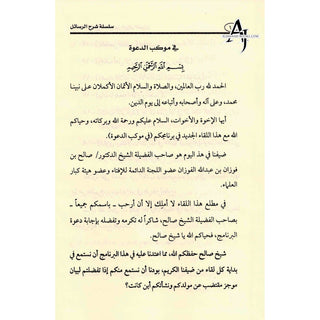 سلسلة شرح الرسائل
في موكب الدعوة
بسم الله الرحمن الرحيم
الحمد لله رب العالمين، والصلاة والسلام الأتمان الأكملان على نبينا
محمد، وعلى آله وأصحابه وأتباعه إلى يوم الدين.
أيها الإخوة والأخوات، السلام عليكم ورحمة الله وبركاته، وحياكم
الله مع هذا اللقاء الجديد في برنامجكم (في موكب الدعوة).
ضيفنا في هذا اليوم هو صاحب الفضيلة الشيخ الدكتور/ صالح بن
فوزان بن عبدالله الفوزان عضو اللجنة الدائمة للإفتاء وعضو هيئة كبار
العلماء.
في مطلع هذا اللقاء لا أملك إلا أن أرحب - باسمكم جميعاً -
بصاحب الفضيلة الشيخ صالح، شاكراً له تكرمه وتفضله بإجابة دعوة
البرنامج، فحياكم الله يا شيخ صالح.
شيخ صالح حفظكم الله، مما اعتدنا عليه في هذا البرنامج أن نستمع في
بداية كل لقاء من ضيفنا الكريم، بودنا أن نستمع منكم إذا تفضلتم لبيان
موجز مقتضب عن مولدكم ونشأتكم أين كانت؟